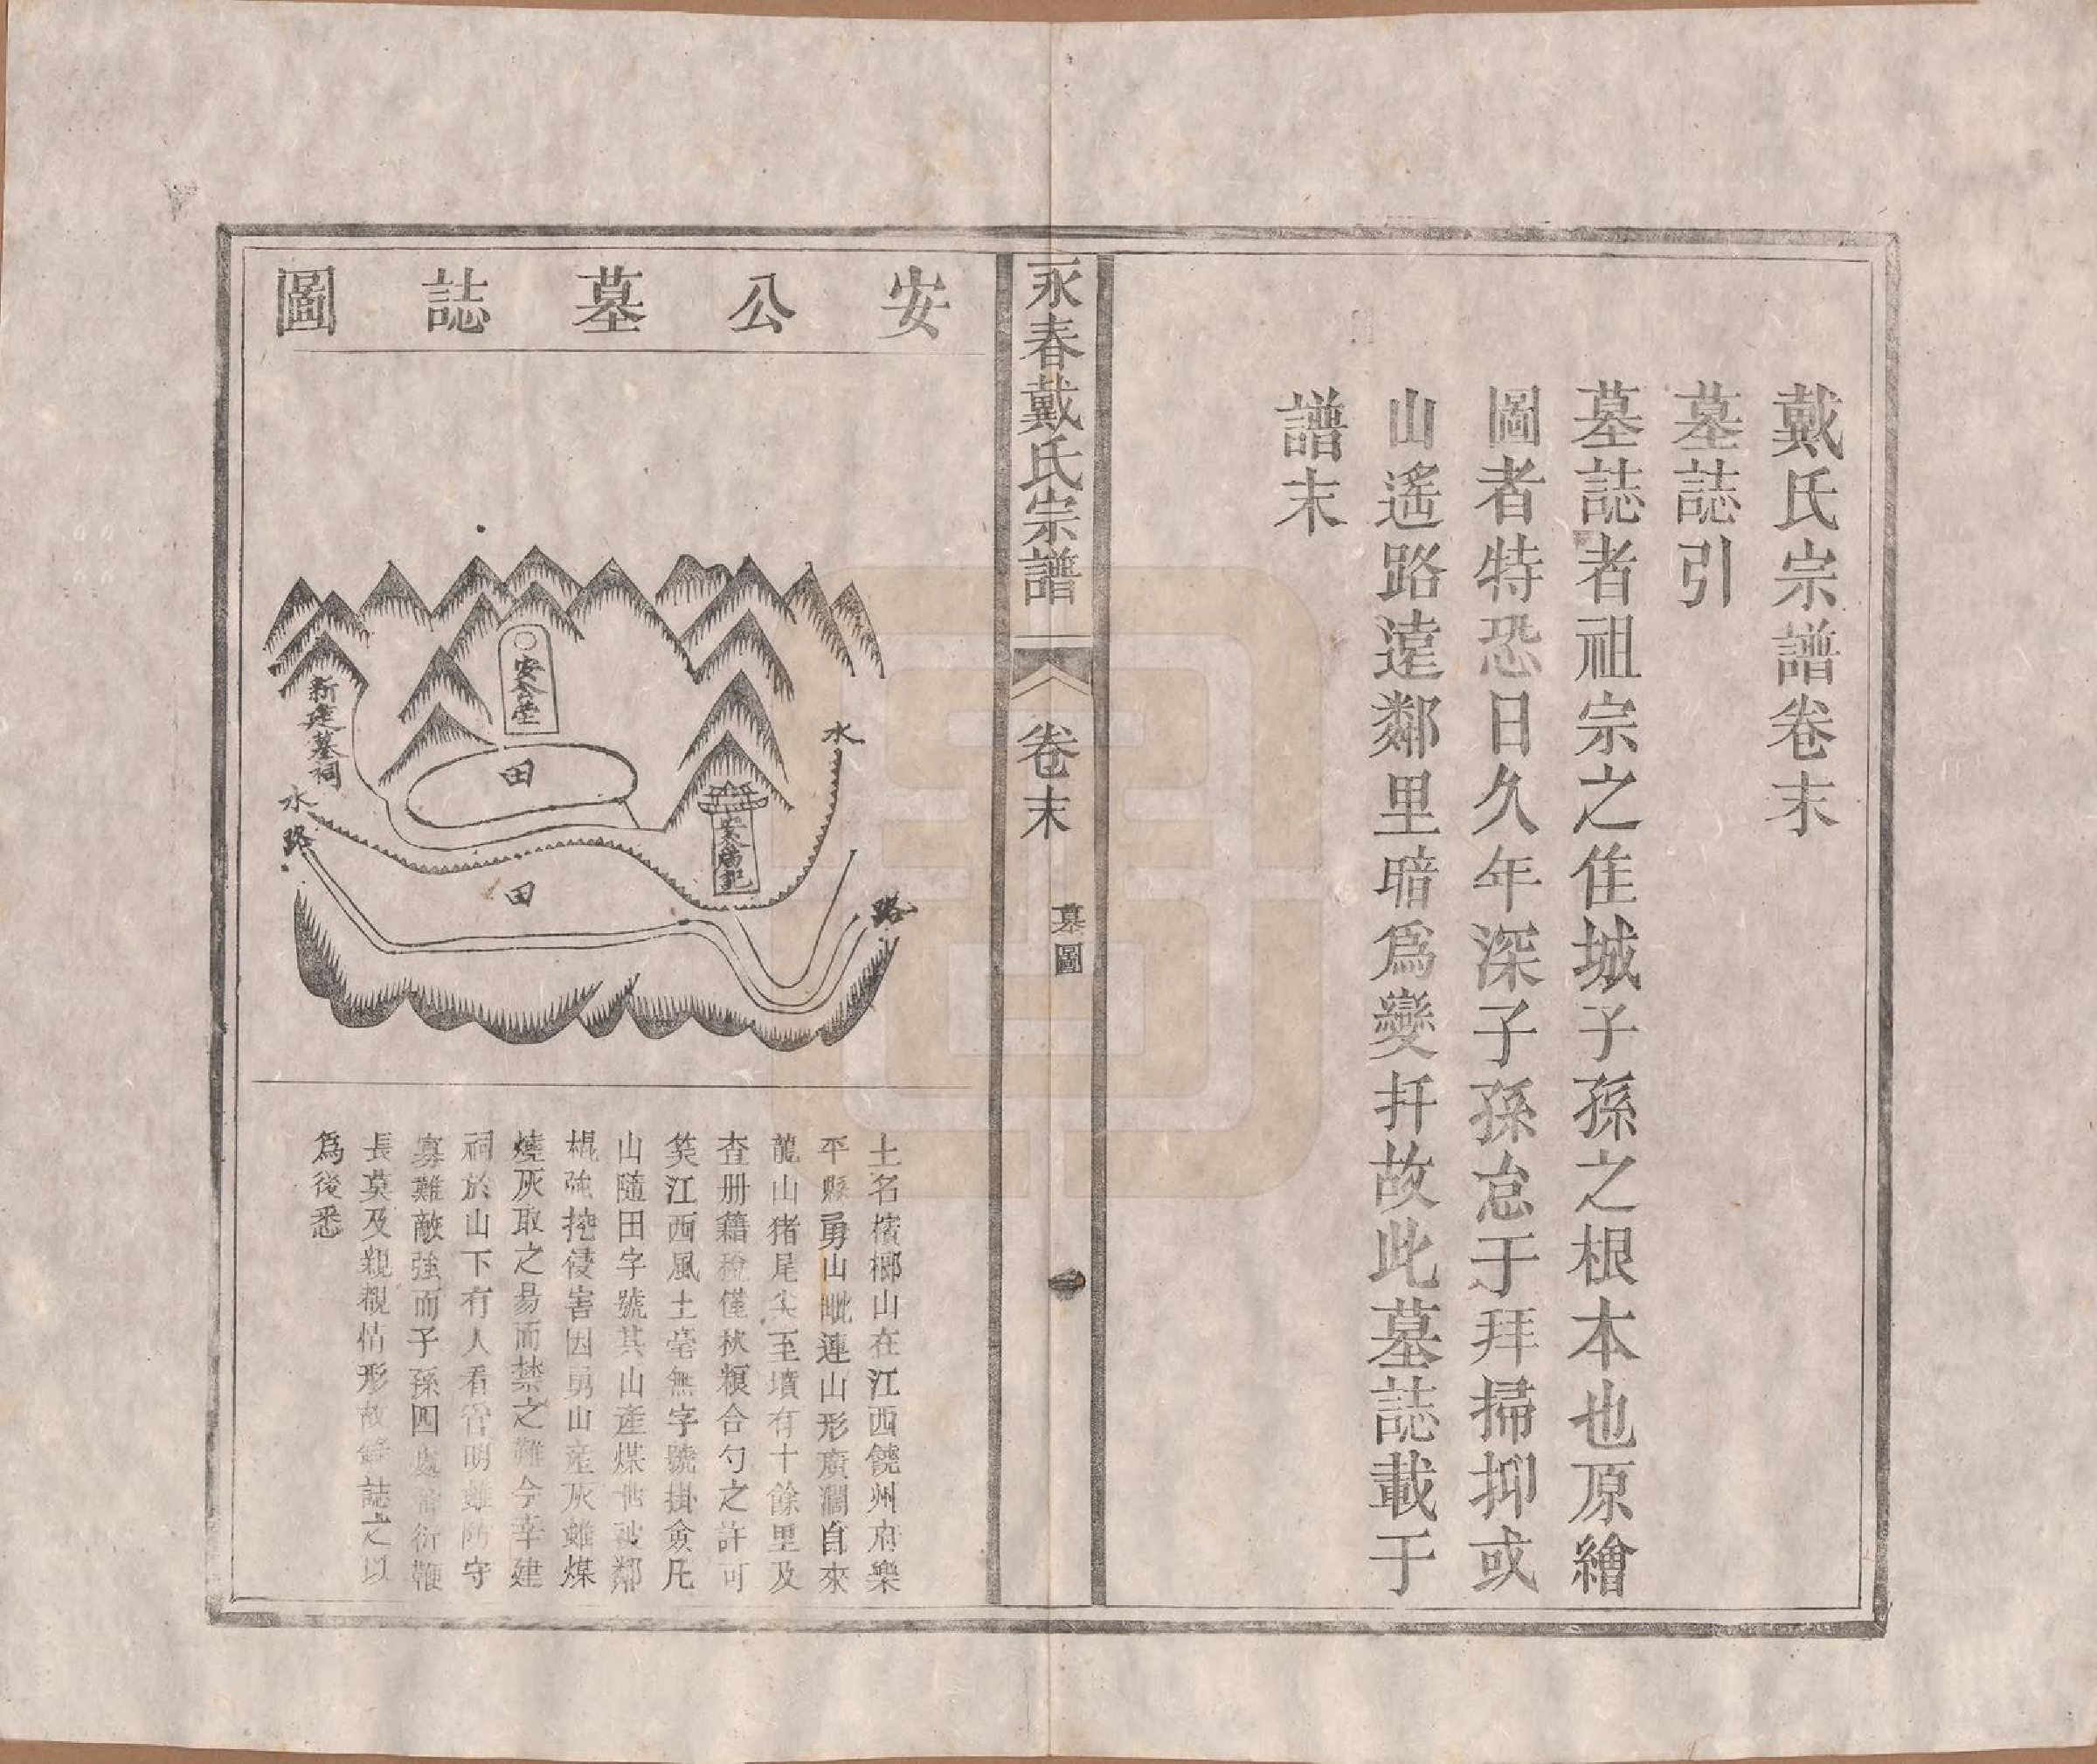 戴氏宗譜卷末
墓誌引
墓誌者祖宗之隹城子孫之根本也原繪
圖者特恐日久年深子孫怠于拜掃抑或
山遙路遠鄰里暗為變扦故此墓誌載于
譜末
永春戴氏宗譜
卷末
墓圖
一
安公墓誌圖
安公塋
田
田
新建墓祠
水
路
水
路
土名檳榔山在江西饒州府樂
平縣勇山毗連山形廣濶自來
龍山猪尾尖至墳有十餘里及
查册籍稅僅秋粮合勺之許可
笑江西風土毫無字號掛僉凡
山隨田字號其山產煤他被鄰
棍強挖侵害因勇山產灰雖煤
燒灰取之易而禁之難今幸建
祠於山下有人看管明難防守
寡難敵強而子孫四處 衍鞭
長莫及親覩情形故 誌之以
為後悉